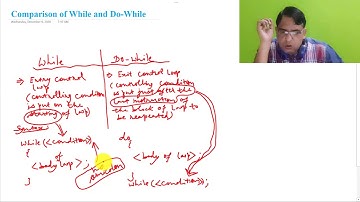 Comparison of While and Do-While
While
Do-while
⇒ Entry control
loop
(controlling condition
is put on the
starting of loop)
Syntax
while(<condition>)
{
<body of loop>;
}
No
semicolon
⇒ Exit control loop
(controlling condition
is put just after the
last instruction of
the block of loop to
be repeated)
do
{
<body of loop>;
}
while(<condition>);